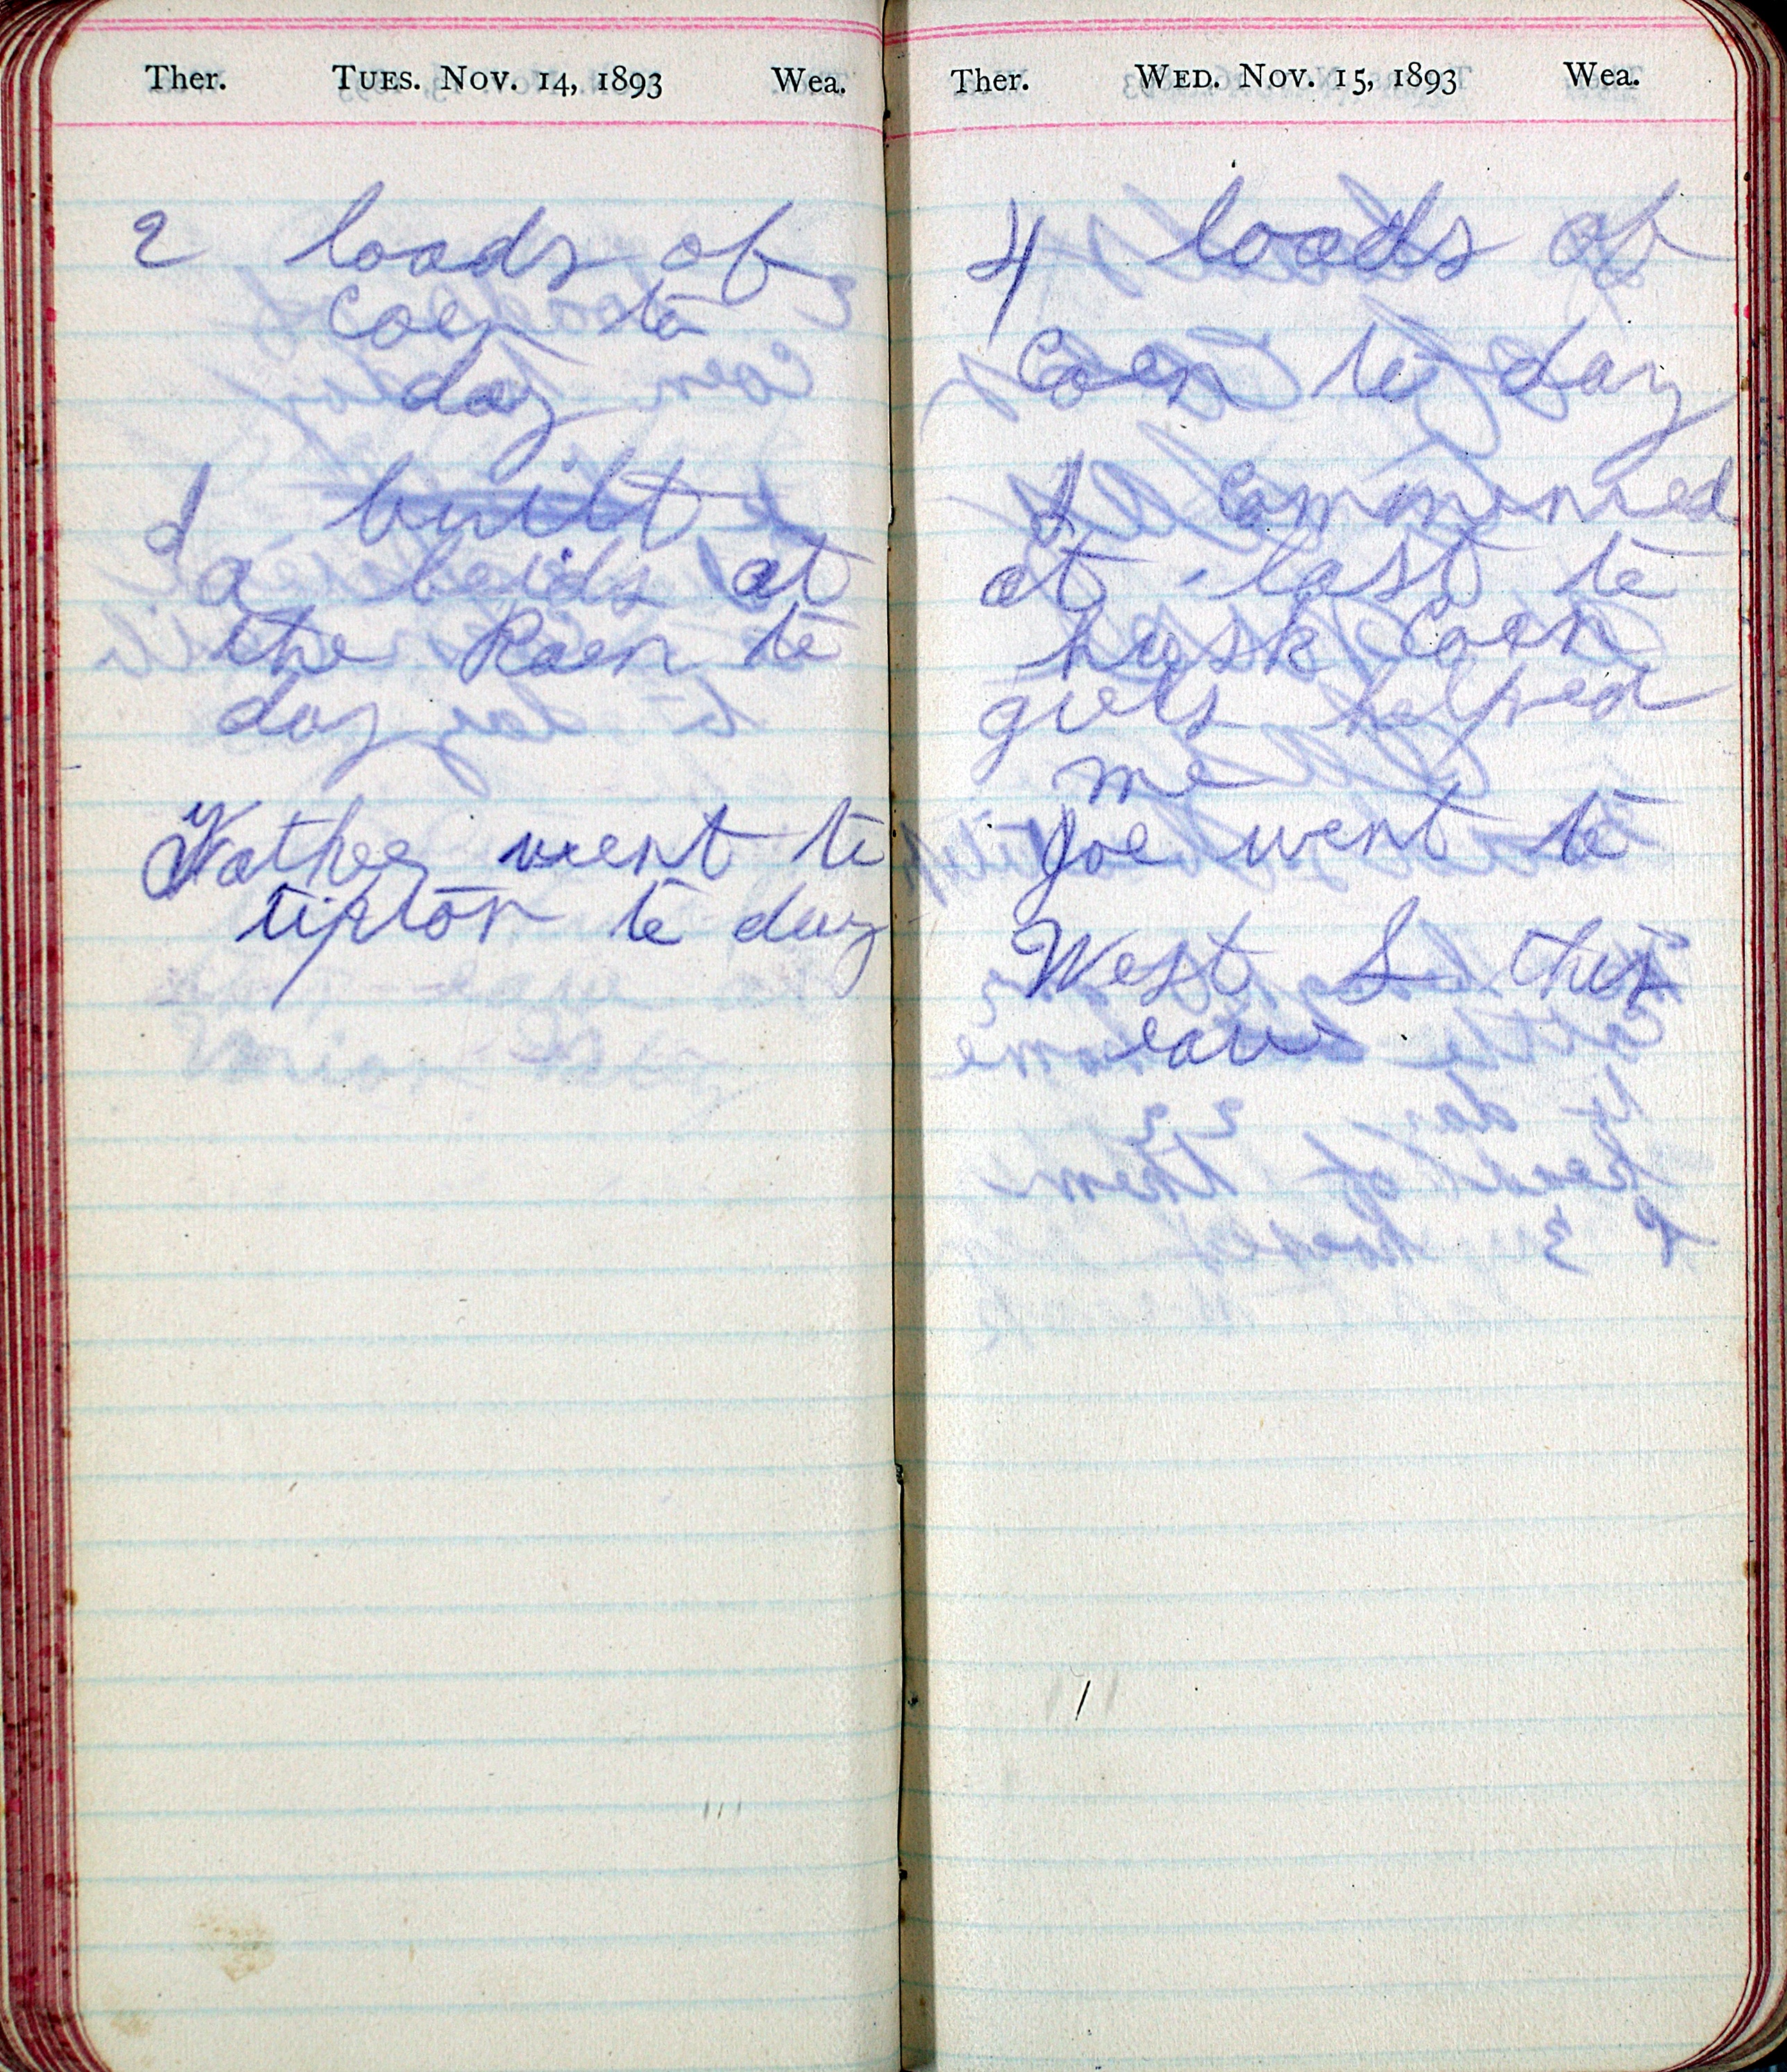 Ther. TUES. NOV. 14, 1893 Wea.
2 loads of
Coen to
day
I built
a beids at
the Koen to
day
Father went to
tipton to day
Ther. WED. NOV. 15, 1893 Wea.
4 loads of
Coen to day
I Commenced
at last to
husk Coen
girls helped
me
Joe went to
West L this